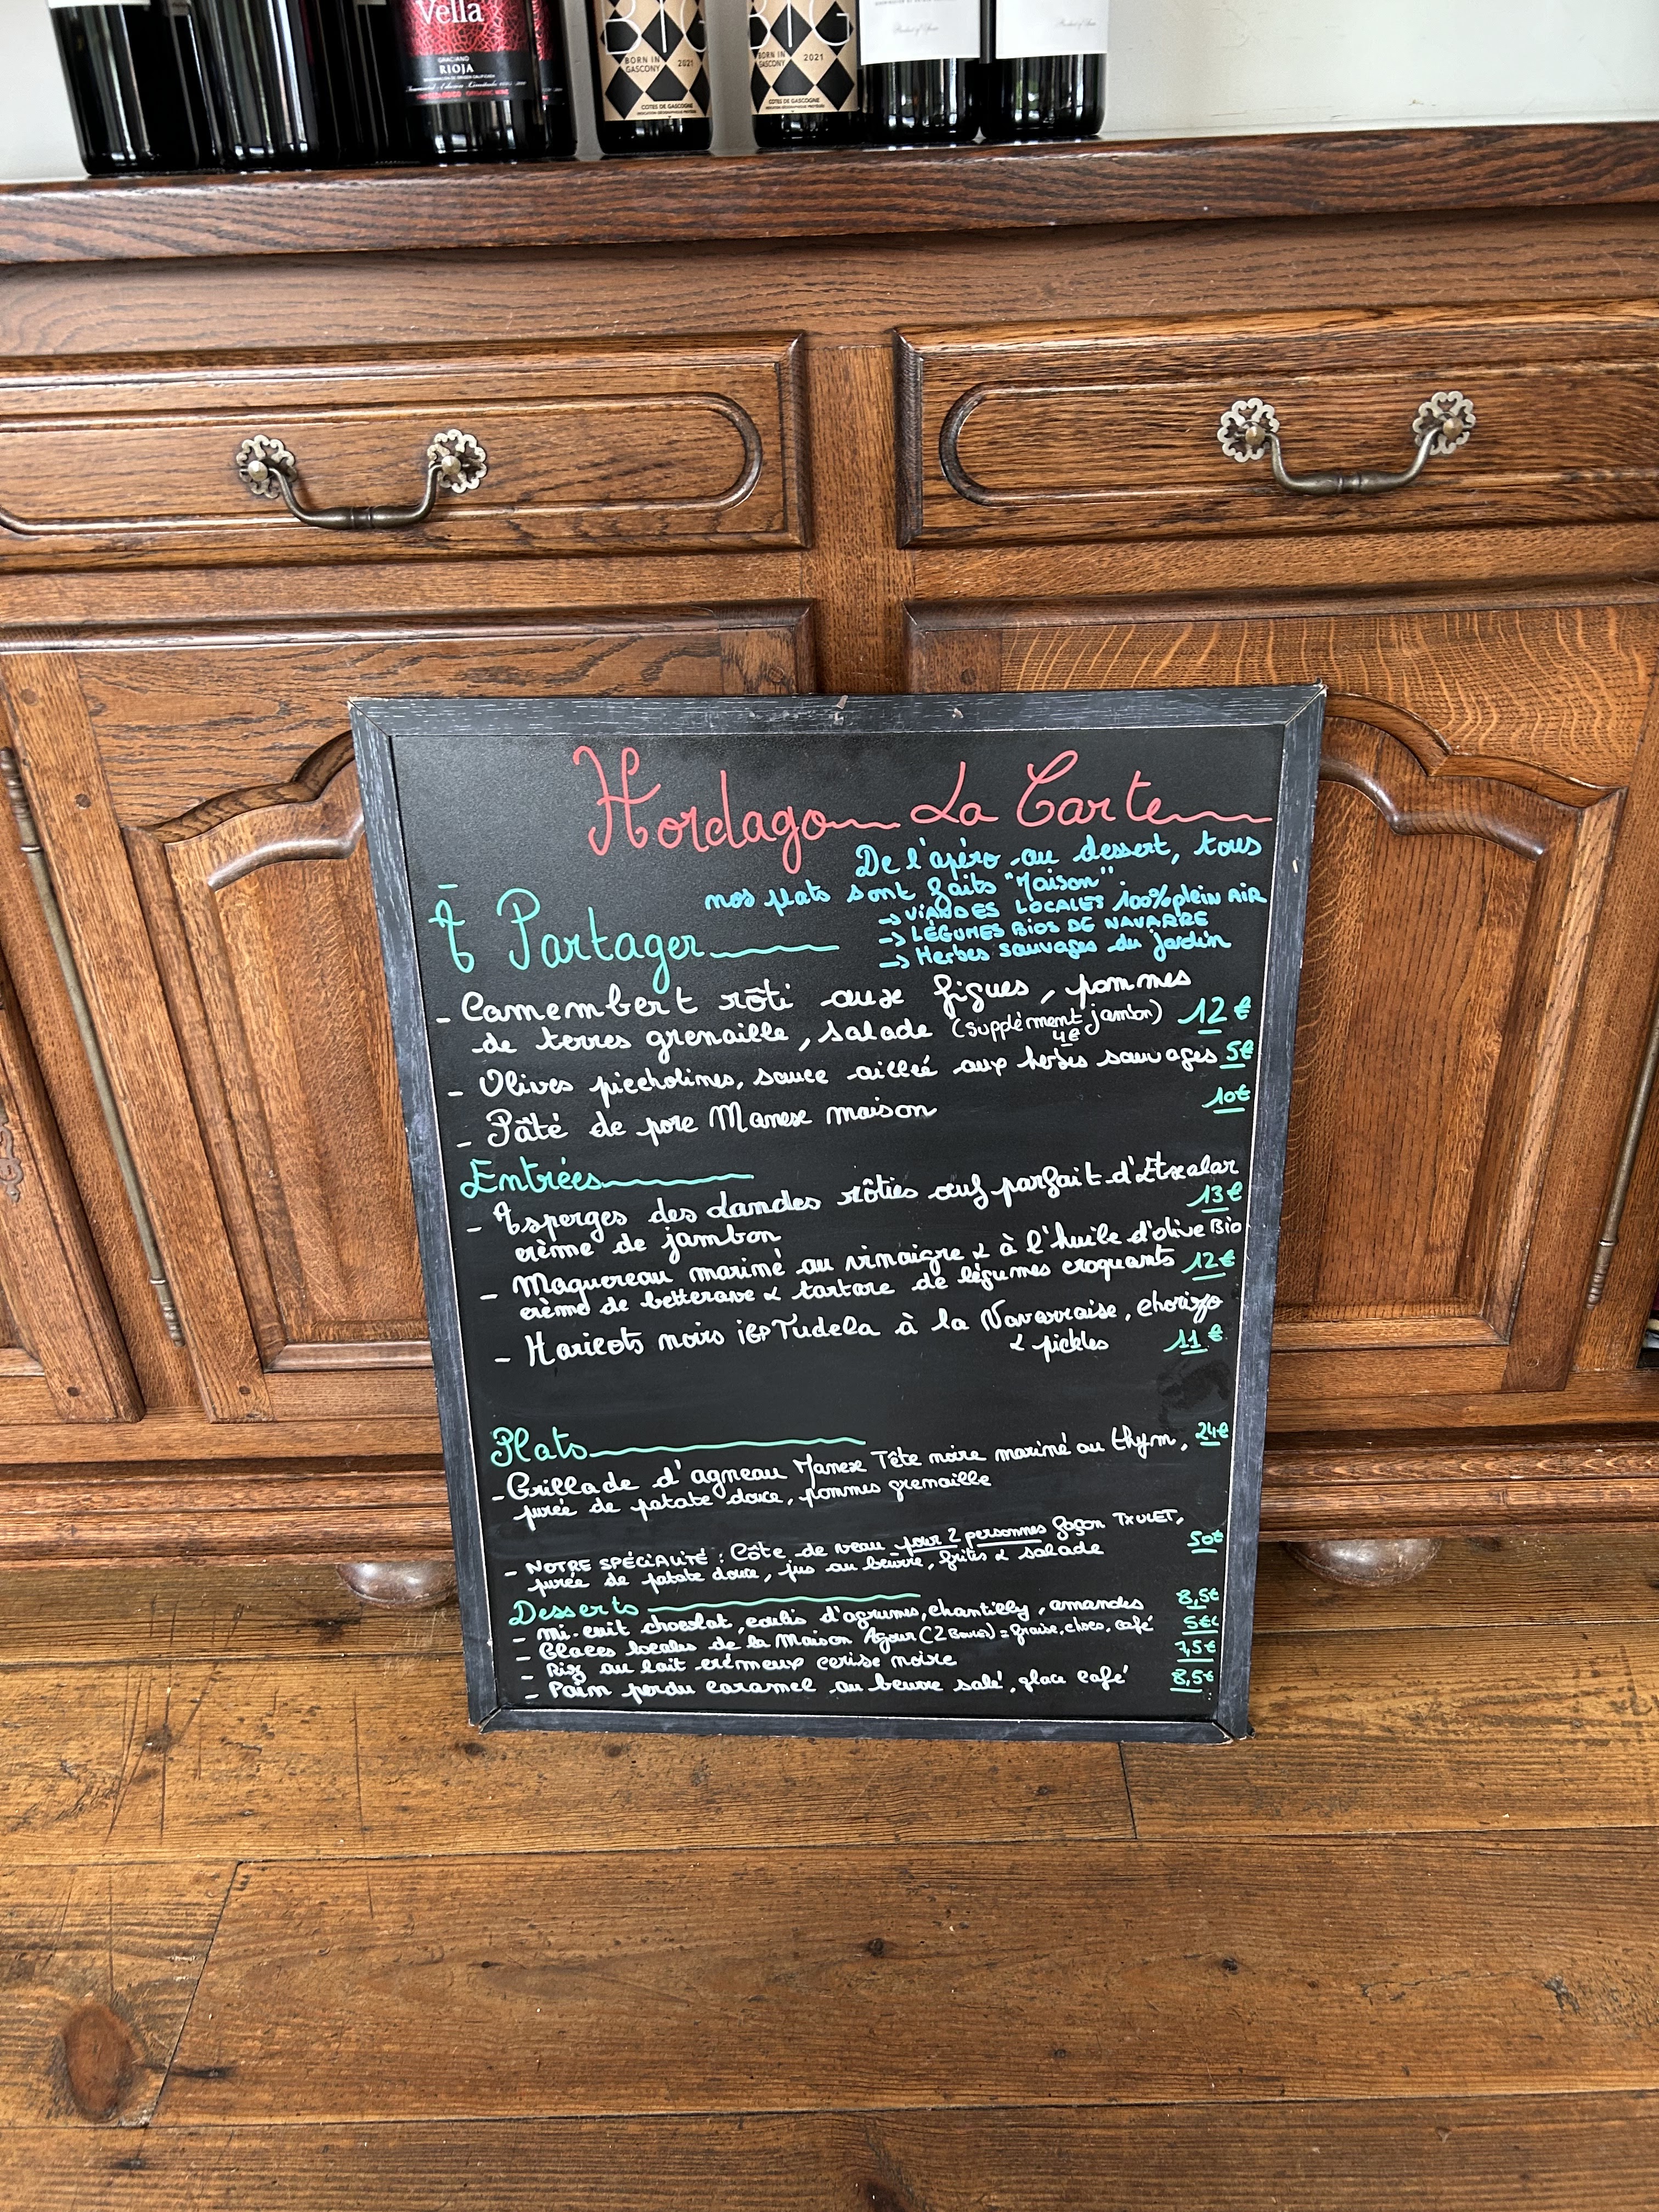 Vella
GRACIANO
RIOJA
BIG
BORN IN
GASCONY
2021
CÔTES DE GASCOGNE
BIG
BORN IN
GASCONY
2021
CÔTES DE GASCOGNE
Product of Spain
Hordago La Carte
De l'apéro au dessert, tous
nos plats sont faits "Maison"
-> VIANDES LOCALES 100% plein AIR
-> LÉGUMES BIOS DE NAVARRE
-> Herbes sauvages du jardin
À Partager
- Camembert rôti aux figues, pommes
de terres grenaille, salade (supplément jambon) 12€
4€
- Olives piccholines, sauce aillée aux herbes sauvages 5€
- Pâté de porc Manex maison 10€
Entrées
- Asperges des Landes rôties œuf parfait d'Etxalar
crème de jambon 13€
- Maquereau mariné au vinaigre & à l'huile d'olive Bio
crème de betterave & tartare de légumes croquants 12€
- Haricots noirs IGP Tudela à la Navarraise, chorizo
& pickles 11€
Plats
- Grillade d'agneau Manex Tête noire mariné au thym, 24€
purée de patate douce, pommes grenaille
- NOTRE SPÉCIALITÉ : Côte de veau pour 2 personnes façon TXULET, 50€
purée de patate douce, jus au beurre, frites & salade
Desserts
- Mi-cuit chocolat, coulis d'agrumes, chantilly, amandes 8,5€
- Glaces locales de la Maison (2 Boules) = fraise, choco, café 5€
- Riz au lait crémeux cerise noire 7,5€
- Pain perdu caramel au beurre salé, glace café 8,5€